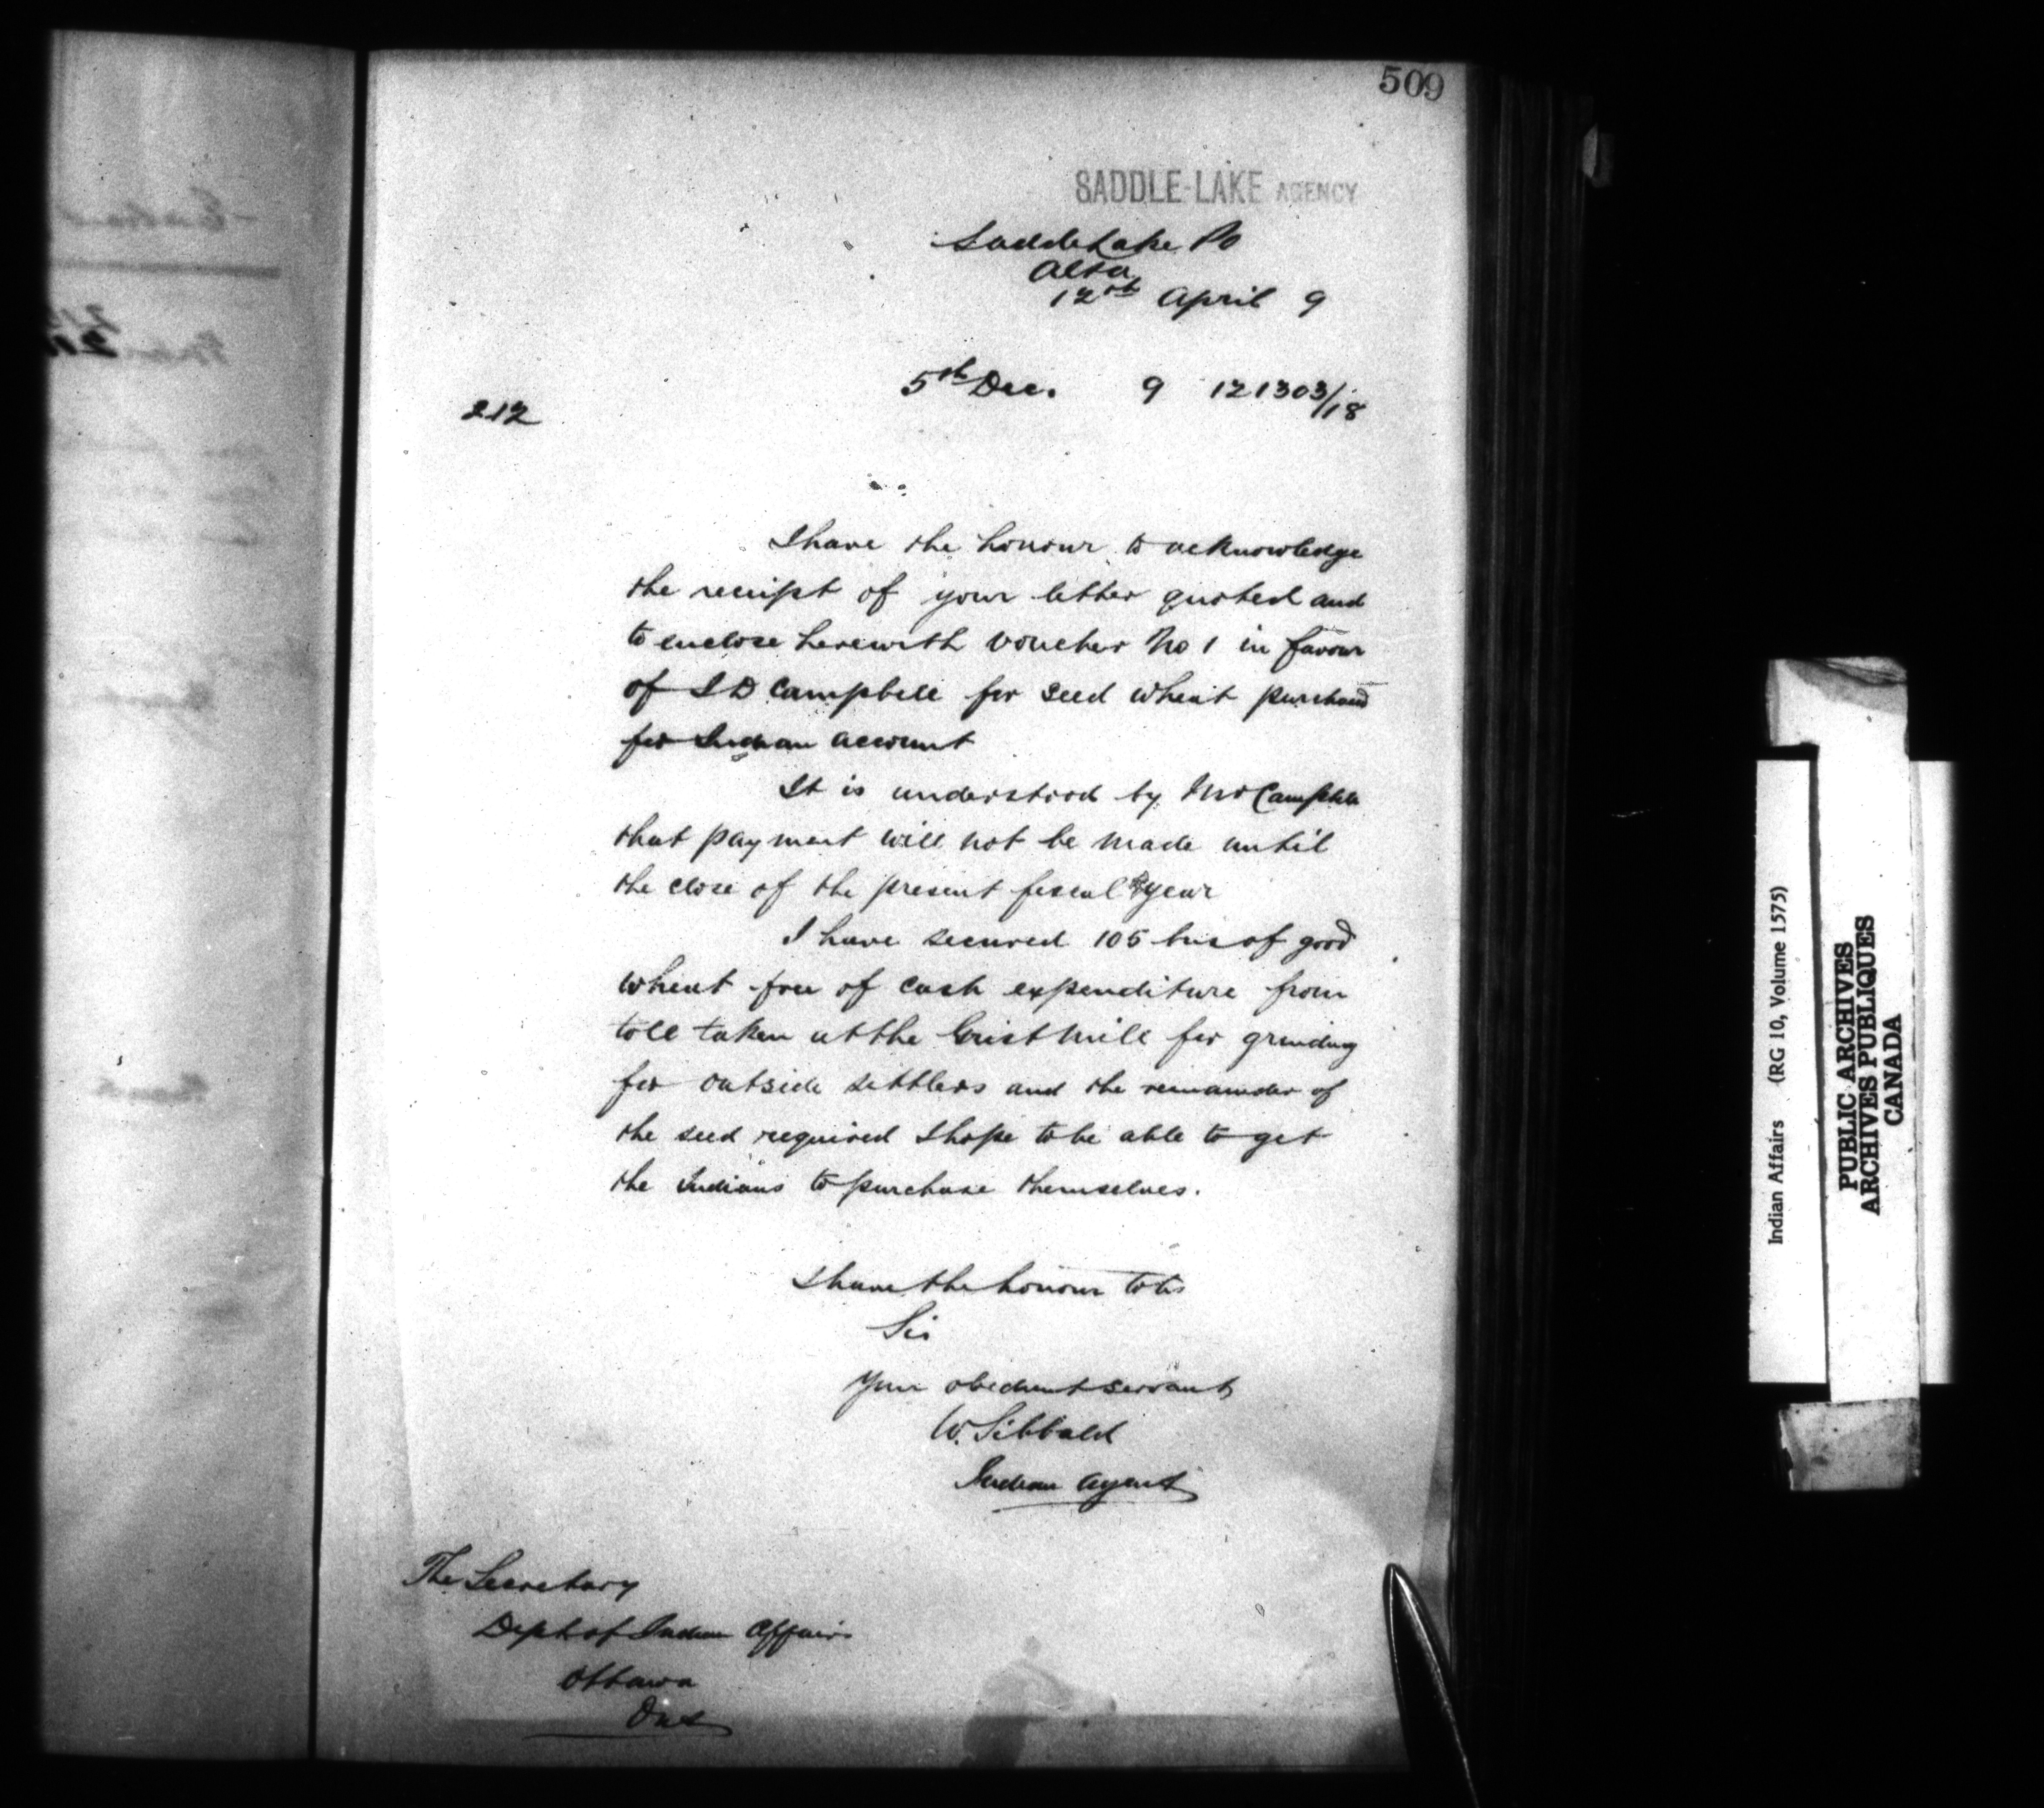 509
SADDLE-LAKE AGENCY
Saddle Lake PO
Alta
12th April 9
5th Dec. 9 121303/18
212
I have the honour to acknowledge
the receipt of your letter quoted and
to enclose herewith Voucher No 1 in favour
of Campbell for seed wheat purchased
for Indian account
It is understood by Mr Campbell
that payment will not be made until
the close of the present fiscal year
I have secured 105 bus of good
wheat free of cash expenditure from
toll taken at the Grist Mill for grinding
for outside settlers and the remainder of
the seed required I hope to be able to get
the Indians to purchase themselves.
I have the honour to be
Sir
Your obedient servant
W. Sibbald
Indian Agent
The Secretary
Dept of Indian Affairs
Ottawa
Ont
Indian Affairs (RG 10, Volume 1575)
PUBLIC ARCHIVES
ARCHIVES PUBLIQUES
CANADA